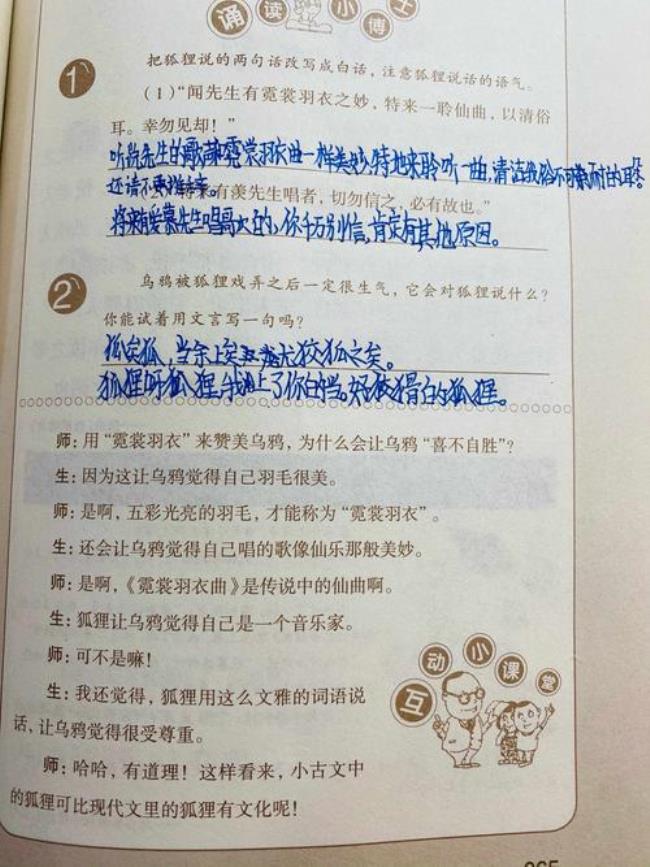 诵读小博士
1
把狐狸说的两句话改写成白话，注意狐狸说话的语气。
（1）“闻先生有霓裳羽衣之妙，特来一聆仙曲，以清俗
耳。幸勿见却！”
听说先生的歌声和霓裳羽衣曲一样美妙,特地来聆听一曲,清洁我俗不可耐的耳朵。
还请不要推辞。
将来有羡先生唱者，切勿信之，必有故也。”
将来有爱慕先生唱哥大的,你千万别信,肯定有其他原因。
2
乌鸦被狐狸戏弄之后一定很生气，它会对狐狸说什么？
你能试着用文言写一句吗？
狐矣狐,当余上矣尤狡狐之矣。
狐狸呀狐狸,我上了你的当。好狡猾的狐狸。
师：用“霓裳羽衣”来赞美乌鸦，为什么会让乌鸦“喜不自胜”？
生：因为这让乌鸦觉得自己羽毛很美。
师：是啊，五彩光亮的羽毛，才能称为“霓裳羽衣”。
生：还会让乌鸦觉得自己唱的歌像仙乐那般美妙。
师：是啊，《霓裳羽衣曲》是传说中的仙曲啊。
生：狐狸让乌鸦觉得自己是一个音乐家。
师：可不是嘛！
生：我还觉得，狐狸用这么文雅的词语说
话，让乌鸦觉得很受尊重。
师：哈哈，有道理！这样看来，小古文中
的狐狸可比现代文里的狐狸有文化呢！
互动小课堂